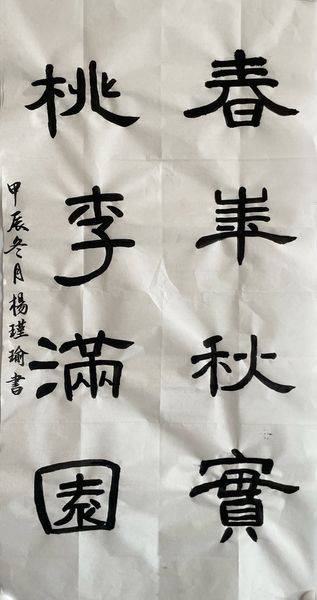 春華秋實
桃李滿園
甲辰冬月楊瑾瑜書